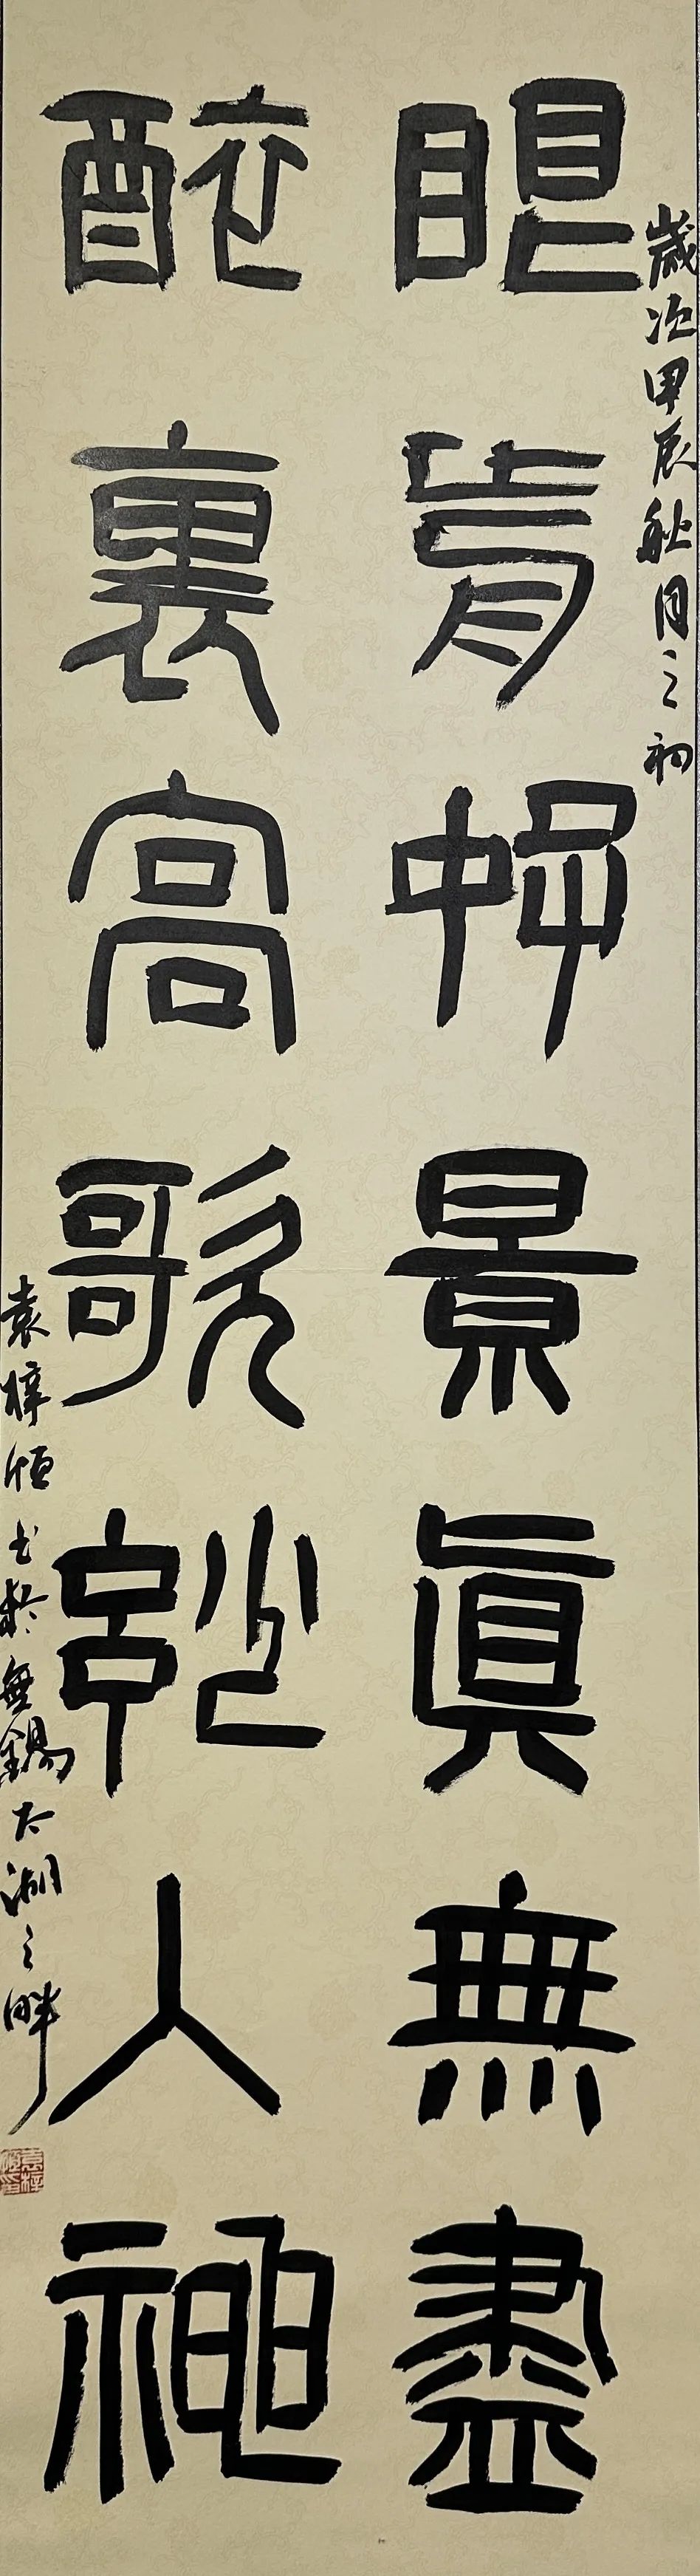 歲次甲辰秋月之初
眼前好景真無盡
醉裏高歌妙入神
袁梓恒书於無錫太湖之畔